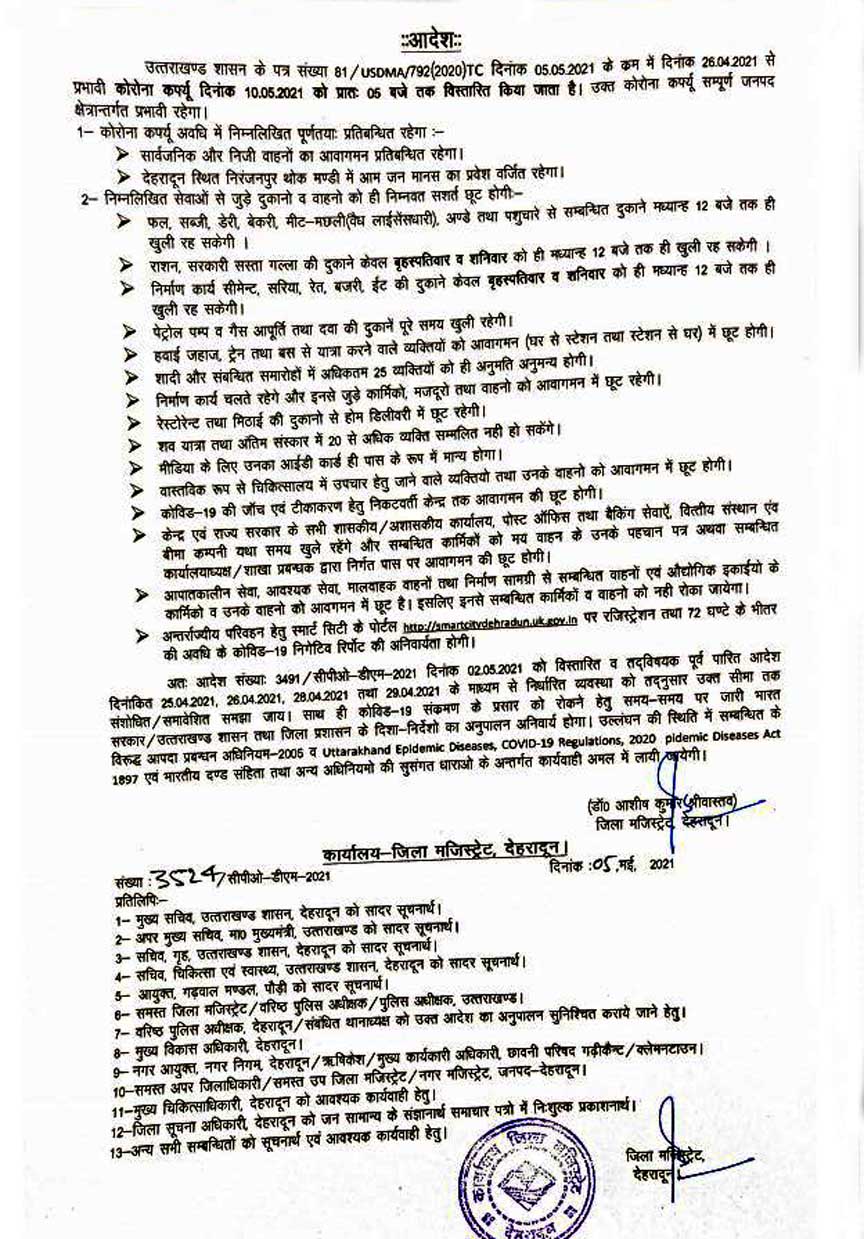 ::आदेश::
उत्तराखण्ड शासन के पत्र संख्या 81/USDMA/792(2020)TC दिनांक 05.05.2021 के कम में दिनांक 26.04.2021 से
प्रभावी कोरोना कर्फ्यू दिनांक 10.05.2021 को प्रातः 05 बजे तक विस्तारित किया जाता है। उक्त कोरोना कर्फ्यू सम्पूर्ण जनपद
क्षेत्रान्तर्गत प्रभावी रहेगा।
1– कोरोना कर्फ्यू अवधि में निम्नलिखित पूर्णतयाः प्रतिबन्धित रहेगा :–
➤ सार्वजनिक और निजी वाहनों का आवागमन प्रतिबन्धित रहेगा।
➤ देहरादून स्थित निरंजनपुर थोक मण्डी में आम जन मानस का प्रवेश वर्जित रहेगा।
2– निम्नलिखित सेवाओं से जुड़े दुकानो व वाहनो को ही निम्नवत सशर्त छूट होगीः–
➤ फल, सब्जी, डेरी, बेकरी, मीट-मछली(वैध लाईसेंसधारी), अण्डे तथा पशुचारे से सम्बन्धित दुकाने मध्यान्ह 12 बजे तक ही
खुली रह सकेगी ।
➤ राशन, सरकारी सस्ता गल्ला की दुकाने केवल बृहस्पतिवार व शनिवार को ही मध्यान्ह 12 बजे तक ही खुली रह सकेगी ।
➤ निर्माण कार्य सीमेन्ट, सरिया, रेत, बजरी, ईट की दुकाने केवल बृहस्पतिवार व शनिवार को ही मध्यान्ह 12 बजे तक ही
खुली रह सकेगी।
➤ पेट्रोल पम्प व गैस आपूर्ति तथा दवा की दुकानें पूरे समय खुली रहेगी।
➤ हवाई जहाज, ट्रेन तथा बस से यात्रा करने वाले व्यक्तियों को आवागमन (घर से स्टेशन तथा स्टेशन से घर) में छूट होगी।
➤ शादी और संबन्धित समारोहों में अधिकतम 25 व्यक्तियों को ही अनुमति अनुमन्य होगी।
➤ निर्माण कार्य चलते रहेगे और इनसे जुड़े कार्मिको, मजदूरो तथा वाहनो को आवागमन में छूट रहेगी।
➤ रेस्टोरेन्ट तथा मिठाई की दुकानो से होम डिलीवरी में छूट रहेगी।
➤ शव यात्रा तथा अंतिम संस्कार में 20 से अधिक व्यक्ति सम्मलित नही हो सकेंगे।
➤ मीडिया के लिए उनका आईडी कार्ड ही पास के रूप में मान्य होगा।
➤ वास्तविक रूप से चिकित्सालय में उपचार हेतु जाने वाले व्यक्तियो तथा उनके वाहनो को आवागमन में छूट होगी।
➤ कोविड-19 की जाँच एवं टीकाकरण हेतु निकटवर्ती केन्द्र तक आवागमन की छूट होगी।
➤ केन्द्र एवं राज्य सरकार के सभी शासकीय/अशासकीय कार्यालय, पोस्ट ऑफिस तथा बैंकिग सेवाऐं, वित्तीय संस्थान एंव
बीमा कम्पनी यथा समय खुले रहेंगे और सम्बन्धित कार्मिकों को मय वाहन के उनके पहचान पत्र अथवा सम्बन्धित
कार्यालयाध्यक्ष/शाखा प्रबन्धक द्वारा निर्गत पास पर आवागमन की छूट होगी।
➤ आपातकालीन सेवा, आवश्यक सेवा, मालवाहक वाहनों तथा निर्माण सामग्री से सम्बन्धित वाहनों एवं औद्योगिक इकाईयो के
कार्मिको व उनके वाहनो को आवगमन में छूट है। इसलिए इनसे सम्बन्धित कार्मिकों व वाहनो को नही रोका जायेगा।
➤ अन्तर्राज्यीय परिवहन हेतु स्मार्ट सिटी के पोर्टल http://smartcitydehradun.uk.gov.in पर रजिस्ट्रेशन तथा 72 घण्टे के भीतर
की अवधि के कोविड-19 निगेटिव रिर्पोट की अनिवार्यता होगी।
अतः आदेश संख्याः 3491/सीपीओ-डीएम-2021 दिनांक 02.05.2021 को विस्तारित व तद्विषयक पूर्व पारित आदेश
दिनांकित 25.04.2021, 26.04.2021, 28.04.2021 तथा 29.04.2021 के माध्यम से निर्धारित व्यवस्था को तद्नुसार उक्त सीमा तक
संशोधित/समावेशित समझा जाय। साथ ही कोविड-19 संकमण के प्रसार को रोकने हेतु समय-समय पर जारी भारत
सरकार/उत्तराखण्ड शासन तथा जिला प्रशासन के दिशा-निर्देशो का अनुपालन अनिवार्य होगा। उल्लंघन की स्थिति में सम्बन्धित के
विरूद्ध आपदा प्रबन्धन अधिनियम-2005 व Uttarakhand Epidemic Diseases, COVID-19 Regulations, 2020 pidemic Diseases Act
1897 एवं भारतीय दण्ड संहिता तथा अन्य अधिनियमो की सुसंगत धाराओ के अन्तर्गत कार्यवाही अमल में लायी जायेगी।
(डॉ0 आशीष कुमार श्रीवास्तव)
जिला मजिस्ट्रेट, देहरादून।
कार्यालय-जिला मजिस्ट्रेट, देहरादून।
संख्या : 3524/सीपीओ-डीएम-2021 दिनांक :05, मई, 2021
प्रतिलिपिः–
1– मुख्य सचिव, उत्तराखण्ड शासन, देहरादून को सादर सूचनार्थ।
2– अपर मुख्य सचिव, मा0 मुख्यमंत्री, उत्तराखण्ड को सादर सूचनार्थ।
3– सचिव, गृह, उत्तराखण्ड शासन, देहरादून को सादर सूचनार्थ।
4– सचिव, चिकित्सा एवं स्वास्थ्य, उत्तराखण्ड शासन, देहरादून को सादर सूचनार्थ।
5– आयुक्त, गढ़वाल मण्डल, पौड़ी को सादर सूचनार्थ।
6– समस्त जिला मजिस्ट्रेट/वरिष्ठ पुलिस अधीक्षक/पुलिस अधीक्षक, उत्तराखण्ड।
7– वरिष्ठ पुलिस अधीक्षक, देहरादून/संबंधित थानाध्यक्ष को उक्त आदेश का अनुपालन सुनिश्चित कराये जाने हेतु।
8– मुख्य विकास अधिकारी, देहरादून।
9– नगर आयुक्त, नगर निगम, देहरादून/ऋषिकेश/मुख्य कार्यकारी अधिकारी, छावनी परिषद गढ़ीकैन्ट/क्लेमनटाउन।
10–समस्त अपर जिलाधिकारी/समस्त उप जिला मजिस्ट्रेट/नगर मजिस्ट्रेट, जनपद-देहरादून।
11–मुख्य चिकित्साधिकारी, देहरादून को आवश्यक कार्यवाही हेतु।
12–जिला सूचना अधिकारी, देहरादून को जन सामान्य के संज्ञानार्थ समाचार पत्रो में निःशुल्क प्रकाशनार्थ।
13–अन्य सभी सम्बन्धितों को सूचनार्थ एवं आवश्यक कार्यवाही हेतु।
जिला मजिस्ट्रेट,
देहरादून।
कार्यालय जिला मजिस्ट्रेट
देहरादून